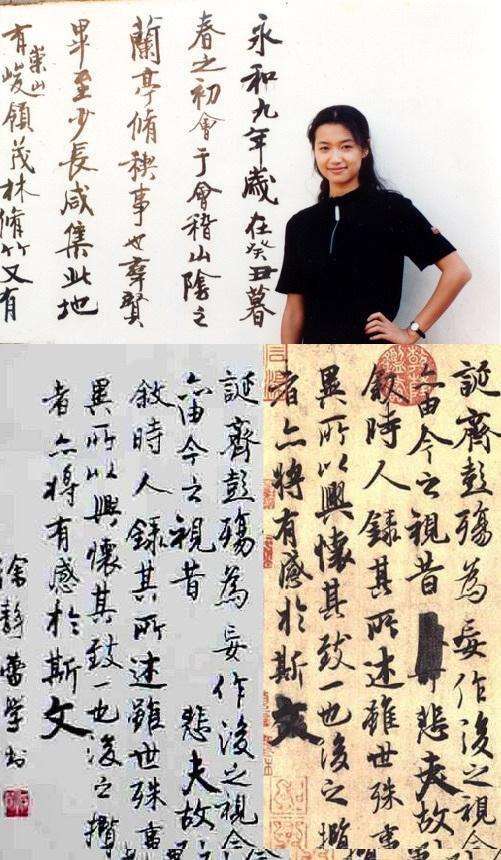 永和九年歲在癸丑暮
春之初會于會稽山陰之
蘭亭脩稧事也羣賢
畢至少長咸集此地
有崇山峻領茂林脩竹又有
誕齊彭殤為妄作後之視今
亦由今之視昔悲夫故
敘時人錄其所述雖世殊事
異所以興懷其致一也後之攬
者亦將有感於斯文
誕齊彭殤為妄作後之視今
亦由今之視昔悲夫故
敘時人錄其所述雖世殊事
異所以興懷其致一也後之攬
者亦將有感於斯文
徐靜蕾學書